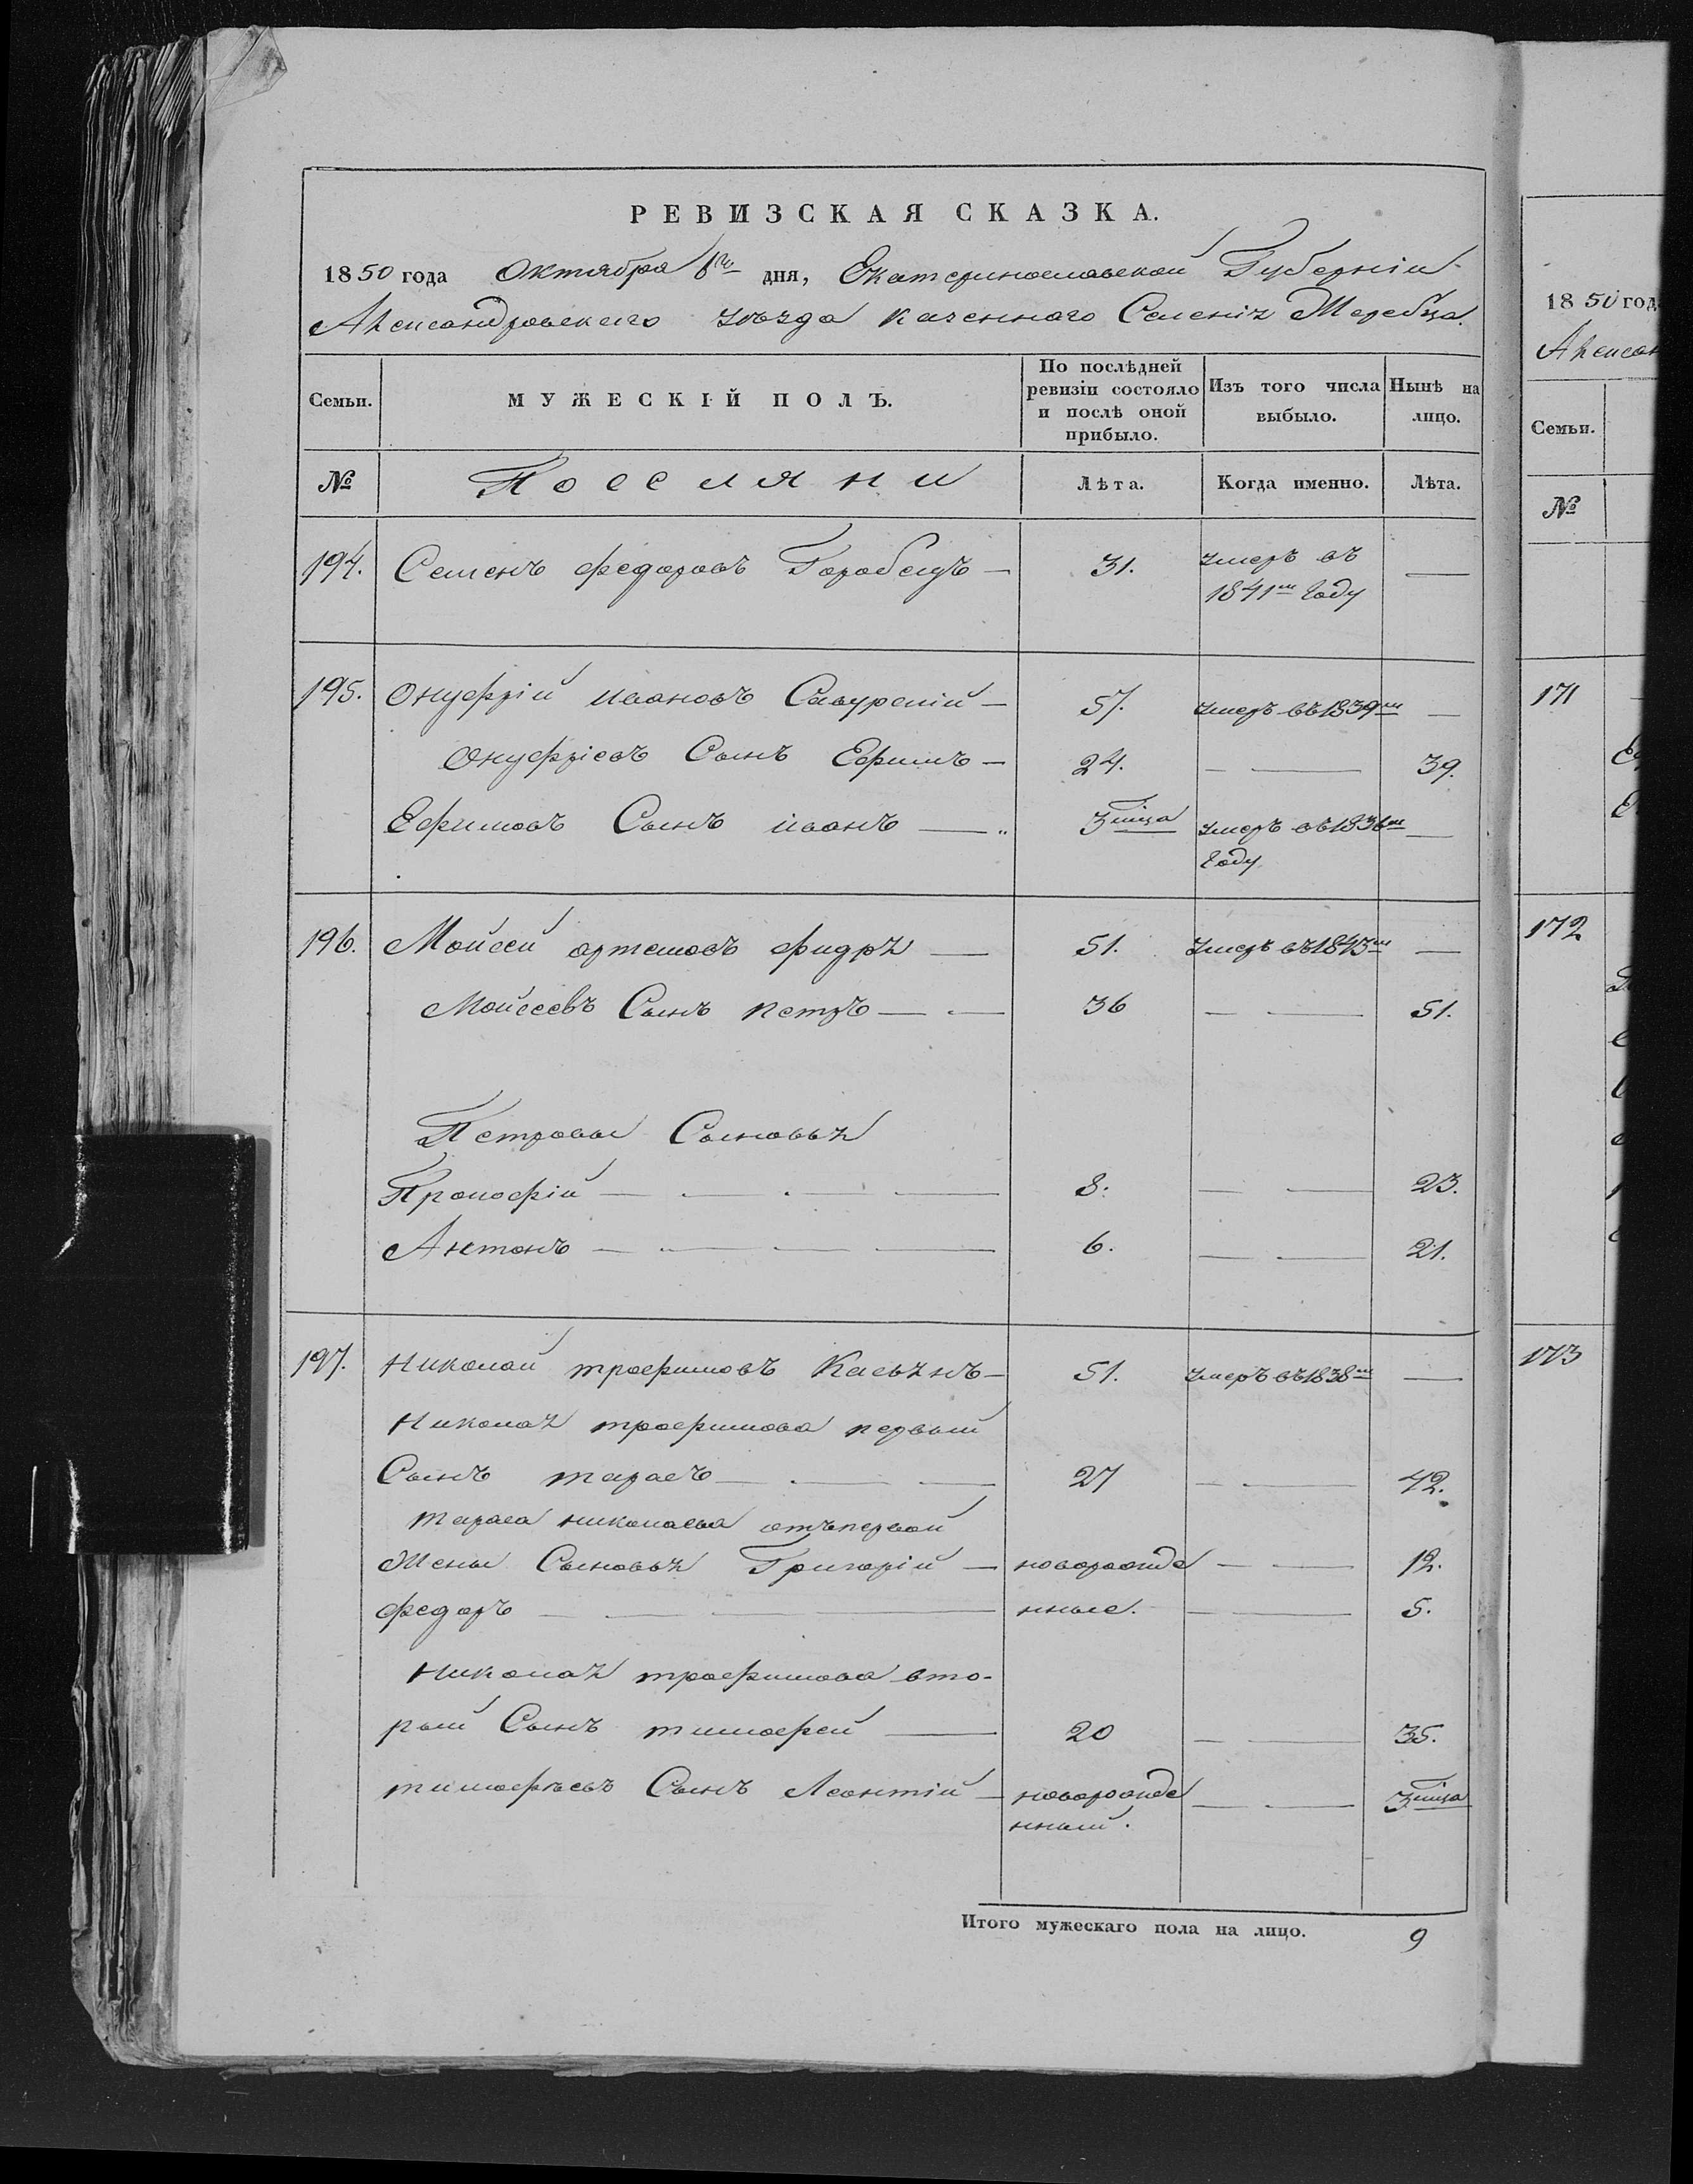 РЕВИЗСКАЯ СКАЗКА.
1850 года Октября 6го дня, Екатеринославской Губерніи
Александровскаго уѣзда казеннаго Селенія Жеребца.
Семьи. МУЖЕСКІЙ ПОЛЪ. По послѣдней ревизіи состояло и послѣ оной прибыло. Изъ того числа выбыло. Нынѣ на лицо.
№ Поселяни Лѣта. Когда именно. Лѣта.
194. Семенъ федоровъ Горобецъ — 31. умеръ въ —
1841м году
195. Онуфрій ивановъ — 57. умеръ въ 1839м —
Онуфріевъ Сынъ Ефимъ — 24. — — 39.
Ефимовъ Сынъ иванъ — 3 мца умеръ въ 1836м —
году
196. Мойсей артемовъ — 51. умеръ въ 1843м —
Мойсеевъ Сынъ петръ — — 36 — — 51.
Петровы Сыновья
Прокофій — — — — 8. — — 23.
Антонъ — — — — 6. — — 21.
197. Николай трофимовъ Касьянъ — 51. умеръ въ 1838м —
Николая трофимова первый
Сынъ тарасъ — — — 27 — — 42.
тараса николаева отъ первой
Жены Сыновья Григорій — новорожде — — 12.
федоръ — — — нные. — — 5.
Николая трофимова вто-
рый Сынъ тимофей — 20 — — 35.
тимофѣевъ Сынъ Леонтій — новорожде — — 3 мца
нный.
Итого мужескаго пола на лицо. 9
1850 год
Алексан
Семьи.
№
171
172
173